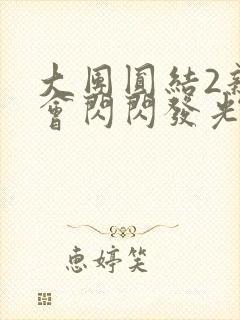 大團圓結2新
會閃閃發光
惠婷笑